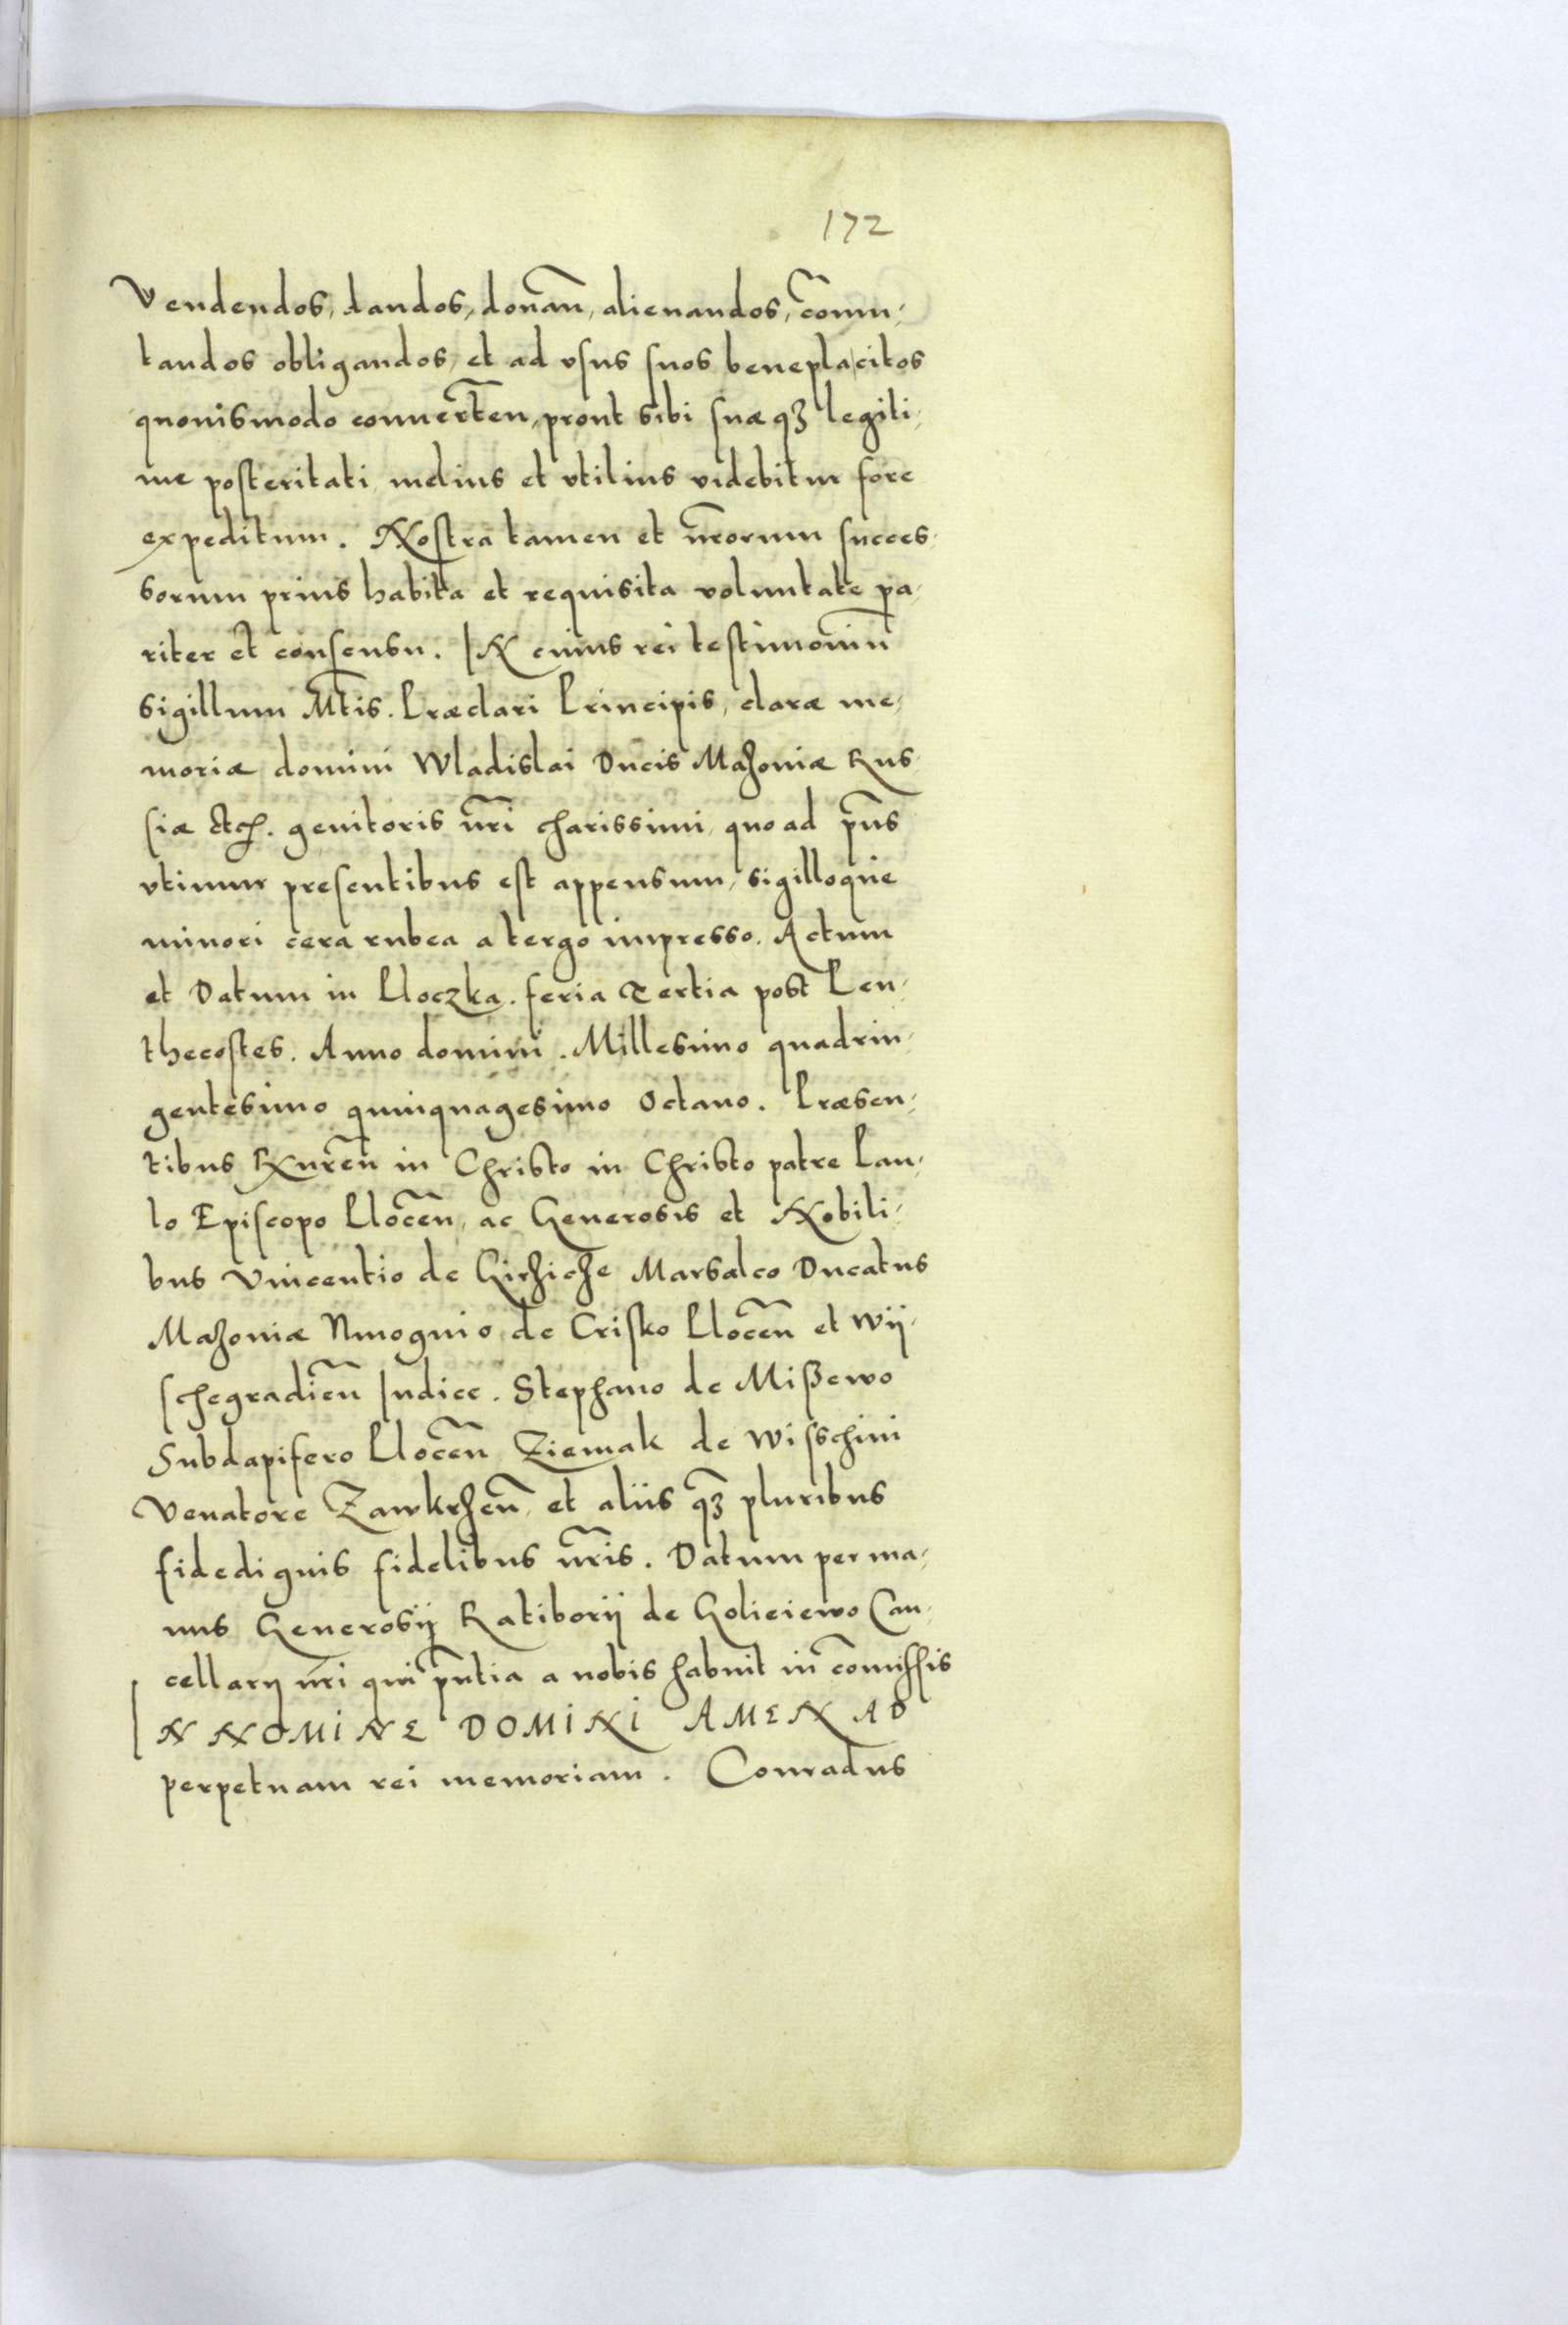 172
Vendendos, dandos, donan̄, alienandos, com̄u-
tandos obligandos, et ad vsus suos beneplacitos
quouismodo conuerten̄, prout sibi suæq₃ legiti-
me posteritati melius et vtilius videbitur fore
expeditum. Nostra tamen et nr̄orum succes-
sorum prius habita et requisita voluntate pa-
riter et consensu. IN cuius rei testimoniū
sigillum Mtis. Præclari Principis, claræ me-
moriæ domini Wladislai Ducis Mazoviæ Rus-
siæ etc. genitoris nr̄i charissimi, quo ad pn̄s
vtimur presentibus est appensum, sigilloque
minori cera rubea a tergo impresso. Actum
et Datum in Ploczka. feria Tertia post Pen-
thecostes. Anno domini. Millesimo quadrin-
gentesimo quinquagesimo Octauo. Præsen-
tibus Rxuren̄ in Christo in Christo patre Pau-
lo Episcopo Plocen̄, ac Generosis et Nobili-
bus Vincentio de Girziche Marsalco Ducatus
Mazoniæ Nmognio de Crisko Plocen̄ et Wij-
schegradien̄ Iudice. Stephano de Mißewo
Subdapifero Plocen̄ Ziemak de Wisschini
Venatore Zawkrzen̄, et aliis q₃ pluribus
fidedignis fidelibus nr̄is. Datum per ma-
nus Generosij Ratiborij de Golieiewo Can-
cellarij nr̄i qui pn̄tia a nobis habuit in com̄issis
IN NOMINE DOMINI AMEN AD
perpetuam rei memoriam. Conradus